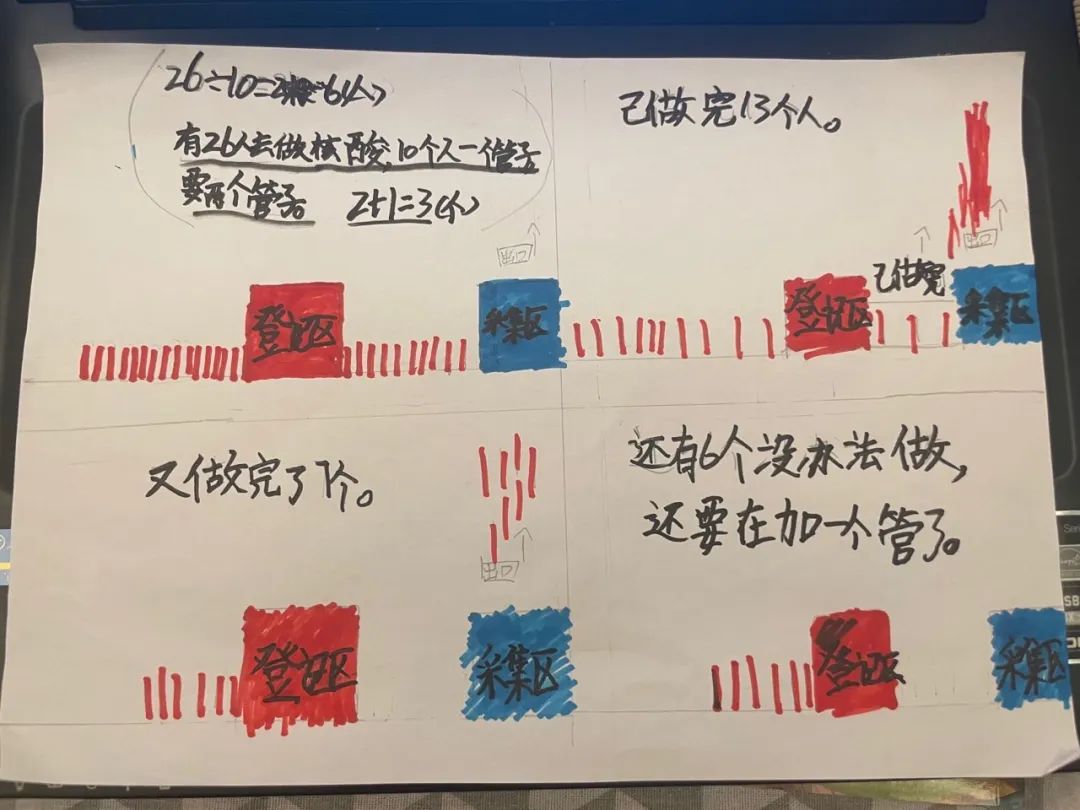 26÷10=2 6(个)
有26人去做核酸,10个人一个管子
要两个管子 2+1=3(个)
出口
登记区
采集区
已做完13个人。
出口
已做完
登记区
采集区
又做完了7个。
出口
登记区
采集区
还有6个没办法做,
还要在加一个管子。
登记区
采集区